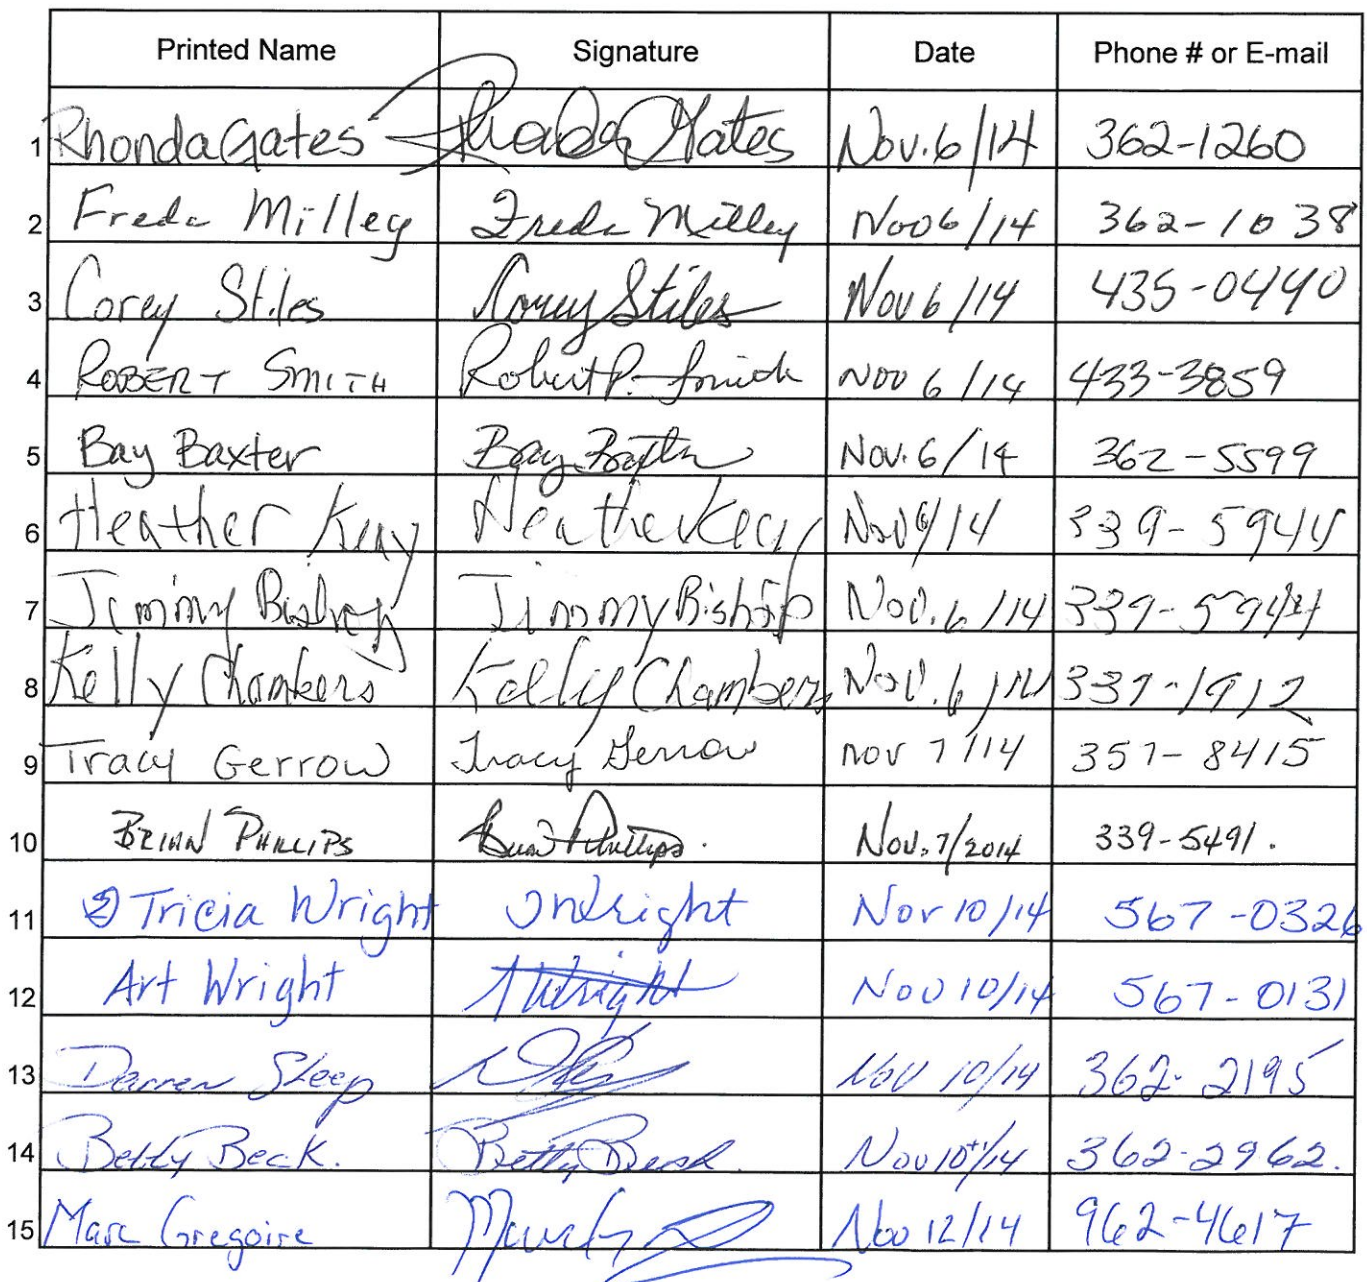 Printed Name Signature Date Phone # or E-mail
1 Rhonda Gates Rhonda Gates Nov. 6/14 362-1260
2 Freda Milley Freda Milley Nov 6/14 362-1038
3 Corey Stiles Corey Stiles Nov 6/14 435-0440
4 ROBERT SMITH Robert P. Smith Nov 6/14 433-3859
5 Bay Baxter Bay Baxter Nov. 6/14 362-5599
6 Heather Keay Heather Keay Nov 6/14 339-5944
7 Jimmy Bishop Jimmy Bishop Nov. 6/14 339-5944
8 Kelly Chambers Kelly Chambers Nov. 6/14 339-1912
9 Tracy Gerrow Tracy Gerrow nov 7/14 357-8415
10 BRIAN PHILLIPS Brian Phillips. Nov. 7/2014 339-5491.
11 Tricia Wright Wright Nov 10/14 567-0326
12 Art Wright AWright Nov 10/14 567-0131
13 Darren Steep Nov 10/14 362-2195
14 Betty Beck. Betty Beck. Nov 10th/14 362-2962.
15 Marc Gregoire Nov 12/14 962-4617